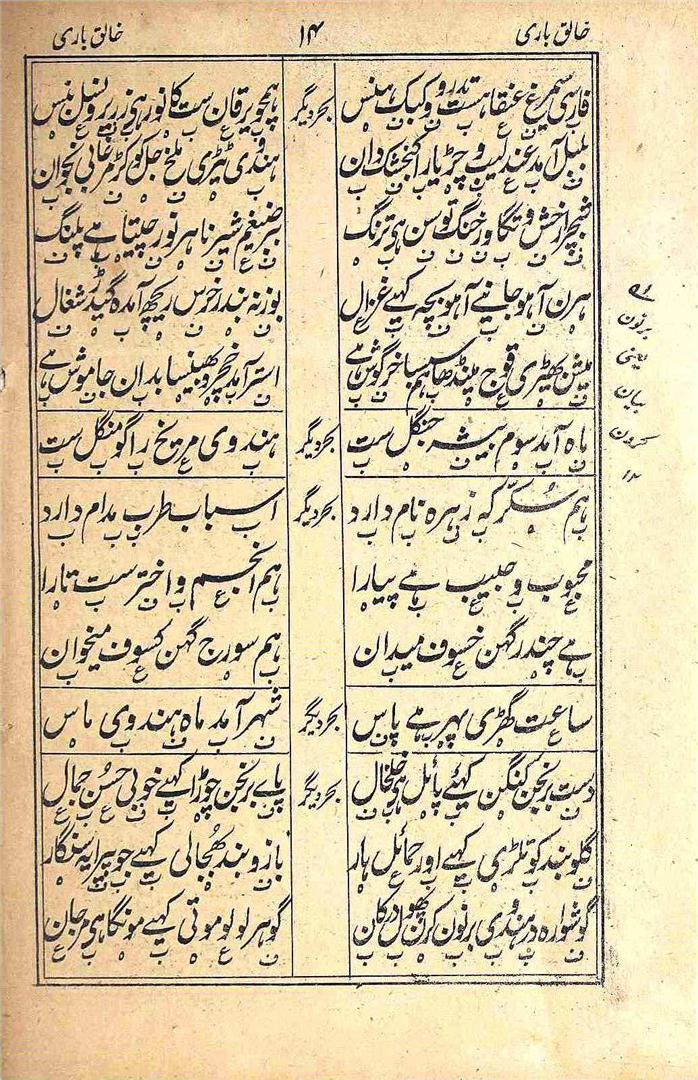 خالق باری ۱۴ خالق باری
فارسی سیمرغ عنقا هست تدرو و کبک ہنس بحر دیگر ہمچو یرقان ست کا نور ہی زریر و نسل بنس
بلبل آمد عندلیب و چڑیا را کنجشک دان ہندوی ٹیڑی ملخ جل کوکڑ مرغابی بخوان
رخش و تگاور خنگ توسن ہی ترنگ ضیغم شیر ناہر نور چیتا ہے پلنگ
ہرن آہو جانیے آہو بچہ کہیے غزال بوزنہ بندر خرس ریچھ آمدہ گیدڑ شغال
میش بھیڑی قوچ مینڈھا ہم سسا خرگوش ہے استر آمد خچر و بھینسا بدان جاموش ہے
ماہ آمد سوم بیشہ جنگل ست بحر دیگر ہندوی مریخ را گو منگل ست
ہم سُکّر کہ زہرہ نام دارد بحر دیگر اسباب طرب مدام دارد
محبوب و حبیب ہے پیارا ہم انجم و اختر ست تارا
ہے چندر گہن خسوف میدان ہم سورج گہن کسوف میخوان
ساعت گھڑی پہر ہے پاس بحر دیگر شہر آمد ماہ ہندوی ماس
دست برنجن کنگن کہئے پائل ہی خلخال بحر دیگر پاے برنجن چوڑا کہیے خوبی حُسن جمال
گلوبند کو تلڑی کہیے اور حمائل ہار بازو بند بھُجالی کہیے جو پیرایہ سنگار
گوشوارہ در ہندوی برنون کرن پھول در کان گوہر لولو موتی کہیے مونگا ہی مرجان
برنون
یعنی
بیان
کرون
۱۲